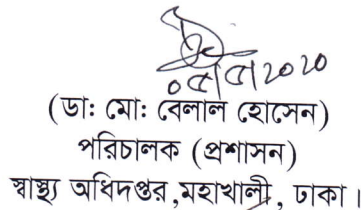 ০৫/৫/২০২০
(ডা: মো: বেলাল হোসেন)
পরিচালক (প্রশাসন)
স্বাস্থ্য অধিদপ্তর,মহাখালী, ঢাকা।